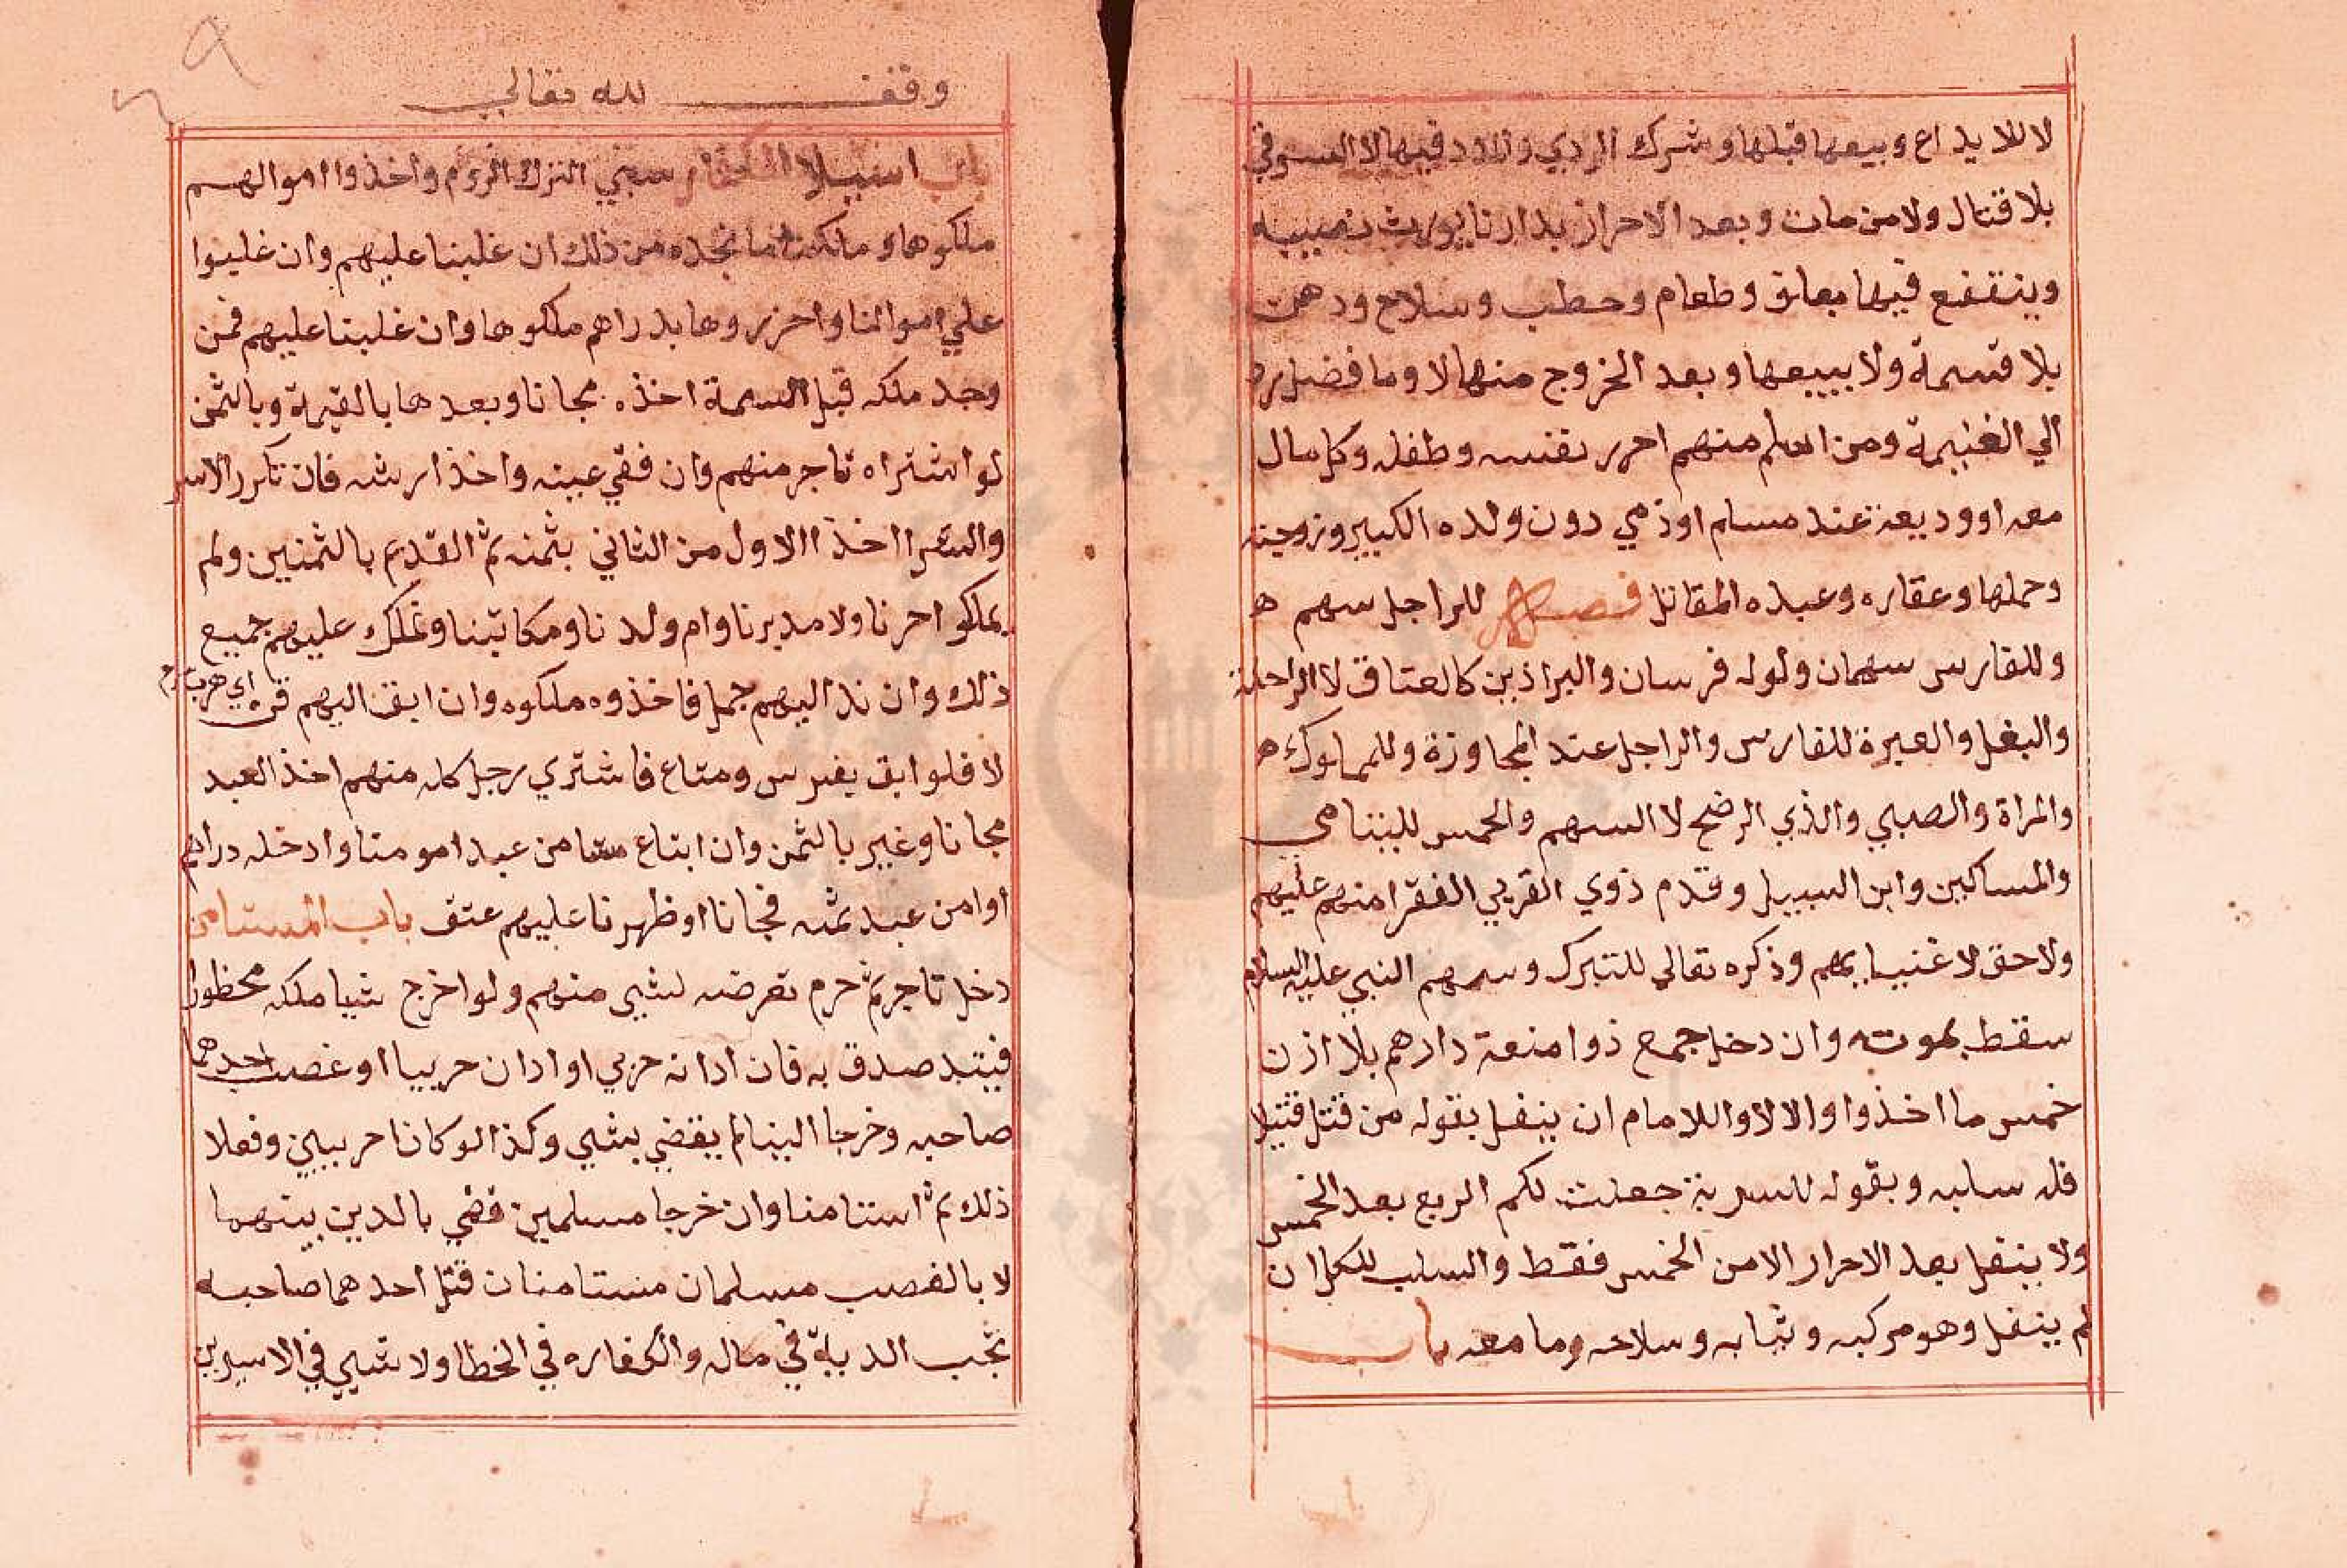 لا للايداع وبيعها قبلها وشرك الردي والمدد فيها لا السوقي
بلا قتال ولا من مات وبعد الاحراز بدارنا يورث نصيبه
وينتفع فيها بعلق وطعام وحطب وسلاح ودهن
بلا قسمة ولا يبيعها وبعد الخروج منها لا وما فضل رد
الي الغنيمة ومن اسلم منهم احرز نفسه وطفله وكل مال
معه او وديعة عند مسلم او ذمي دون ولده الكبير وزوجته
وحملها وعقاره وعبده المقاتل فصل للراجل سهم ه
وللفارس سهمان ولو له فرسان والبراذين كالعتاق لا الراحلة
والبغل والعبرة للفارس والراجل عند المجاوزة وللمملوك ه
والمراة والصبي والذي الرضخ لا السهم والخمس لليتامي
والمساكين وابن السبيل وقدم ذوي القربي الفقرا منهم عليهم
ولا حق لاغنيايهم وذكره تعالي للتبرك وسهم النبي عليه السلام
سقط بموته وان دخل جمع ذوا منعة دارهم بلا اذن
خمس ما اخذوا والا لا وللامام ان ينفل بقوله من قتل قتيلا
فله سلبه وبقوله للسرية جعلت لكم الربع بعد الخمس
ولا ينفل بعد الاحراز الا من الخمس فقط والسلب للكل ان
لم ينفل وهو مركبه وثيابه وسلاحه وما معه باب
وقف لله تعالي
باب استيلا الكفار سبي الترك الروم واخذوا اموالهم
ملكوها وملكنا ما نجده من ذلك ان غلبنا عليهم وان غلبوا
علي اموالنا واحرزوها بدراهم ملكوها وان غلبنا عليهم فمن
وجد ملكه قبل القسمة اخذه مجانا وبعدها بالقيمة وبالثمن
لو اشتراه تاجر منهم وان فقي عينه واخذ ارشه فان تكرر الاسر
والشرا اخذ االاول من الثاني بثمنه ثم القديم بالثمنين ولم
يملكوا حرنا ولا مدبرنا وام ولدنا ومكاتبنا ونملك عليهم جميع
ذلك وان ند اليهم جمل فاخذوه ملكوه وان ابق اليهم قن اي هرب
لا فلو ابق بفرس ومتاع فاشتري رجل كله منهم اخذ العبد
مجانا وغير بالثمن وان ابتاع مستامن عبدا مومنا وادخله دراهم
او امن عبد ثمه فجانا او ظهرنا عليهم عتق باب المستامن
دخل تاجر ثم حرم تعرضه لشي منهم ولو اخرج شيا ملكه محظورا
فيتصدق به فان ادانه حربي او ادان حربيا او غصب احدهما
صاحبه وخرجا الينا لم يقضي بشي وكذا لو كانا حربيين وفعلا
ذلك ثم استامنا وان خرجا مسلمين قضي بالدين بينهما
لا بالغصب مسلمان مستامنان قتل احدهما صاحبه
تجب الدية في ماله والكفاره في الخطا ولا شي في الاسيرين